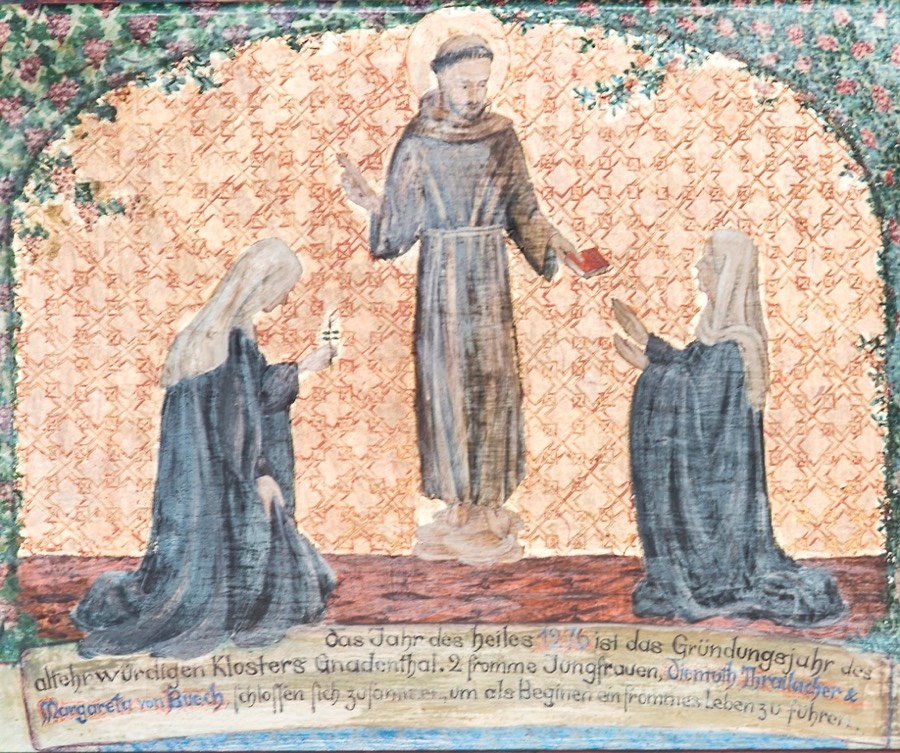 Das Jahr des heiles 1276 ist das Gründungsjahr des
altehrwürdigen Klosters Gnadenthal. 2 fromme Jungfrauen, Diemuth Thrallacher &
Margareta von Buech, schlossen sich zusammen, um als Beginen ein frommes Leben zu führen.